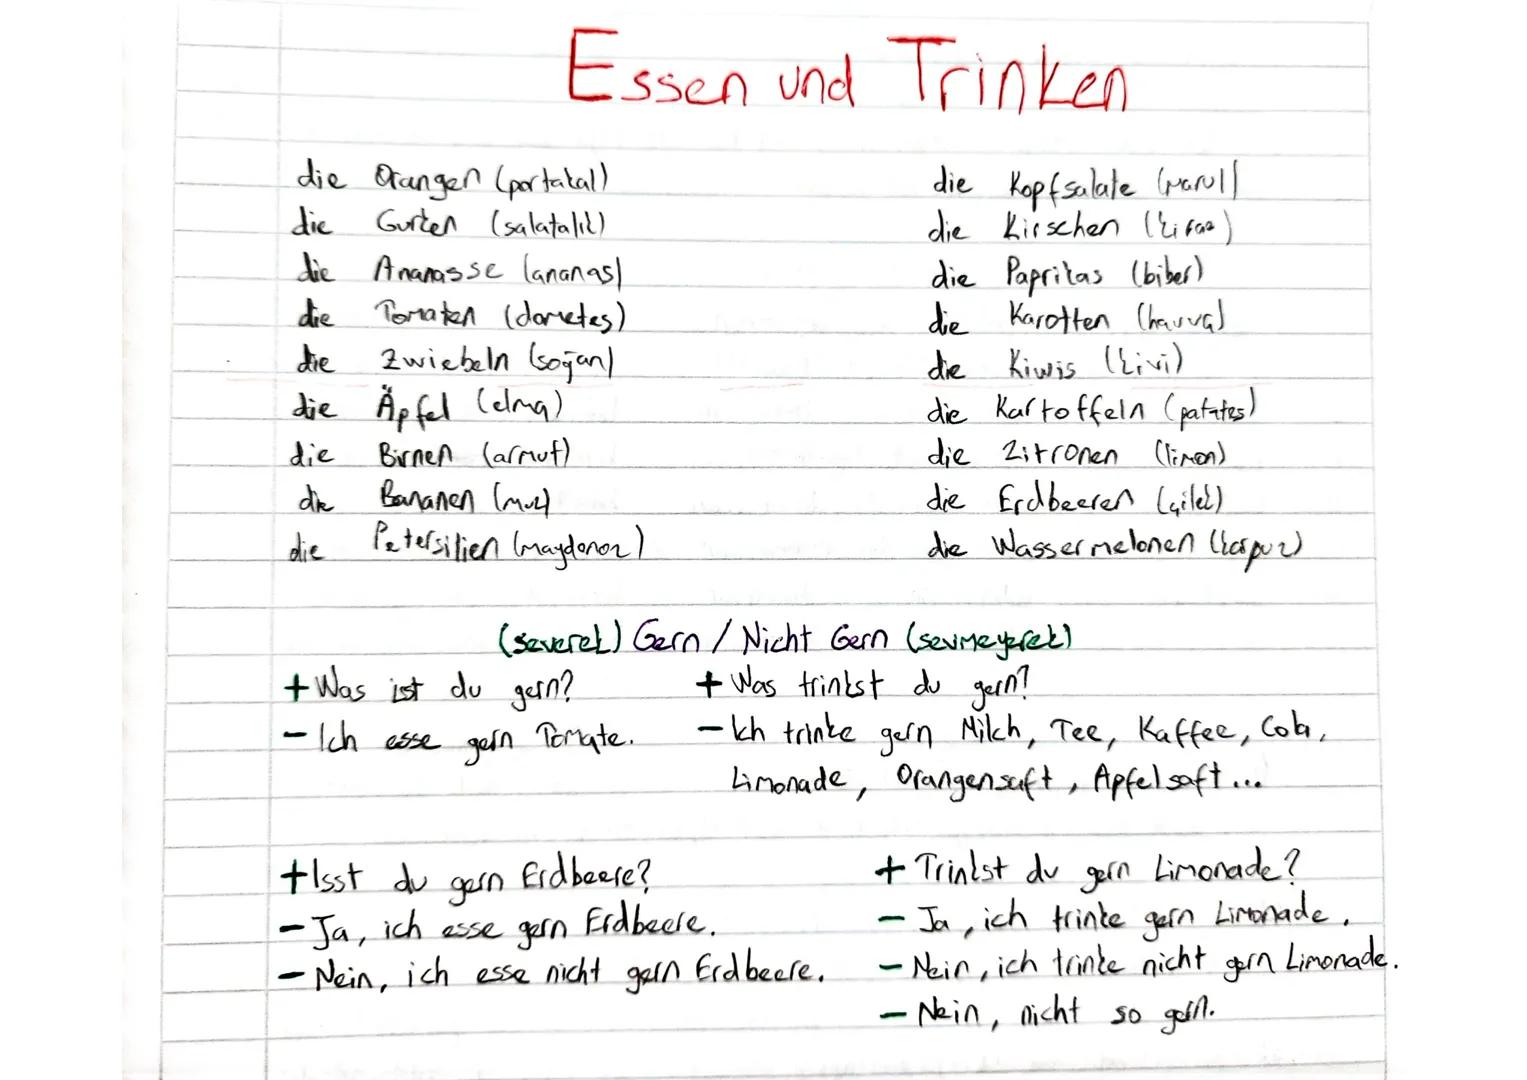 Essen und Trinken
die Orangen (portakal)
die Gurken (salatalık)
die Ananasse (ananas)
die Tomaten (dometes)
die Zwiebeln (soğan)
die Äpfel (elma)
die Birnen (armut)
die Bananen (muz)
die Petersilien (maydonoz)
die Kopfsalate (marul)
die Kirschen (kiraz)
die Paprikas (biber)
die Karotten (havuç)
die Kiwis (kivi)
die Kartoffeln (patates)
die Zitronen (limon)
die Erdbeeren (çilek)
die Wassermelonen (karpuz)
(severek) Gern / Nicht Gern (sevmeyerek)
+ Was ist du gern?
- Ich esse gern Tomate.
+ Was trinkst du gern?
- Ich trinke gern Milch, Tee, Kaffee, Cola,
Limonade, Orangensaft, Apfelsaft...
+ Isst du gern Erdbeere?
- Ja, ich esse gern Erdbeere.
- Nein, ich esse nicht gern Erdbeere.
+ Trinkst du gern Limonade?
- Ja, ich trinke gern Limonade.
- Nein, ich trinke nicht gern Limonade.
- Nein, nicht so gern.